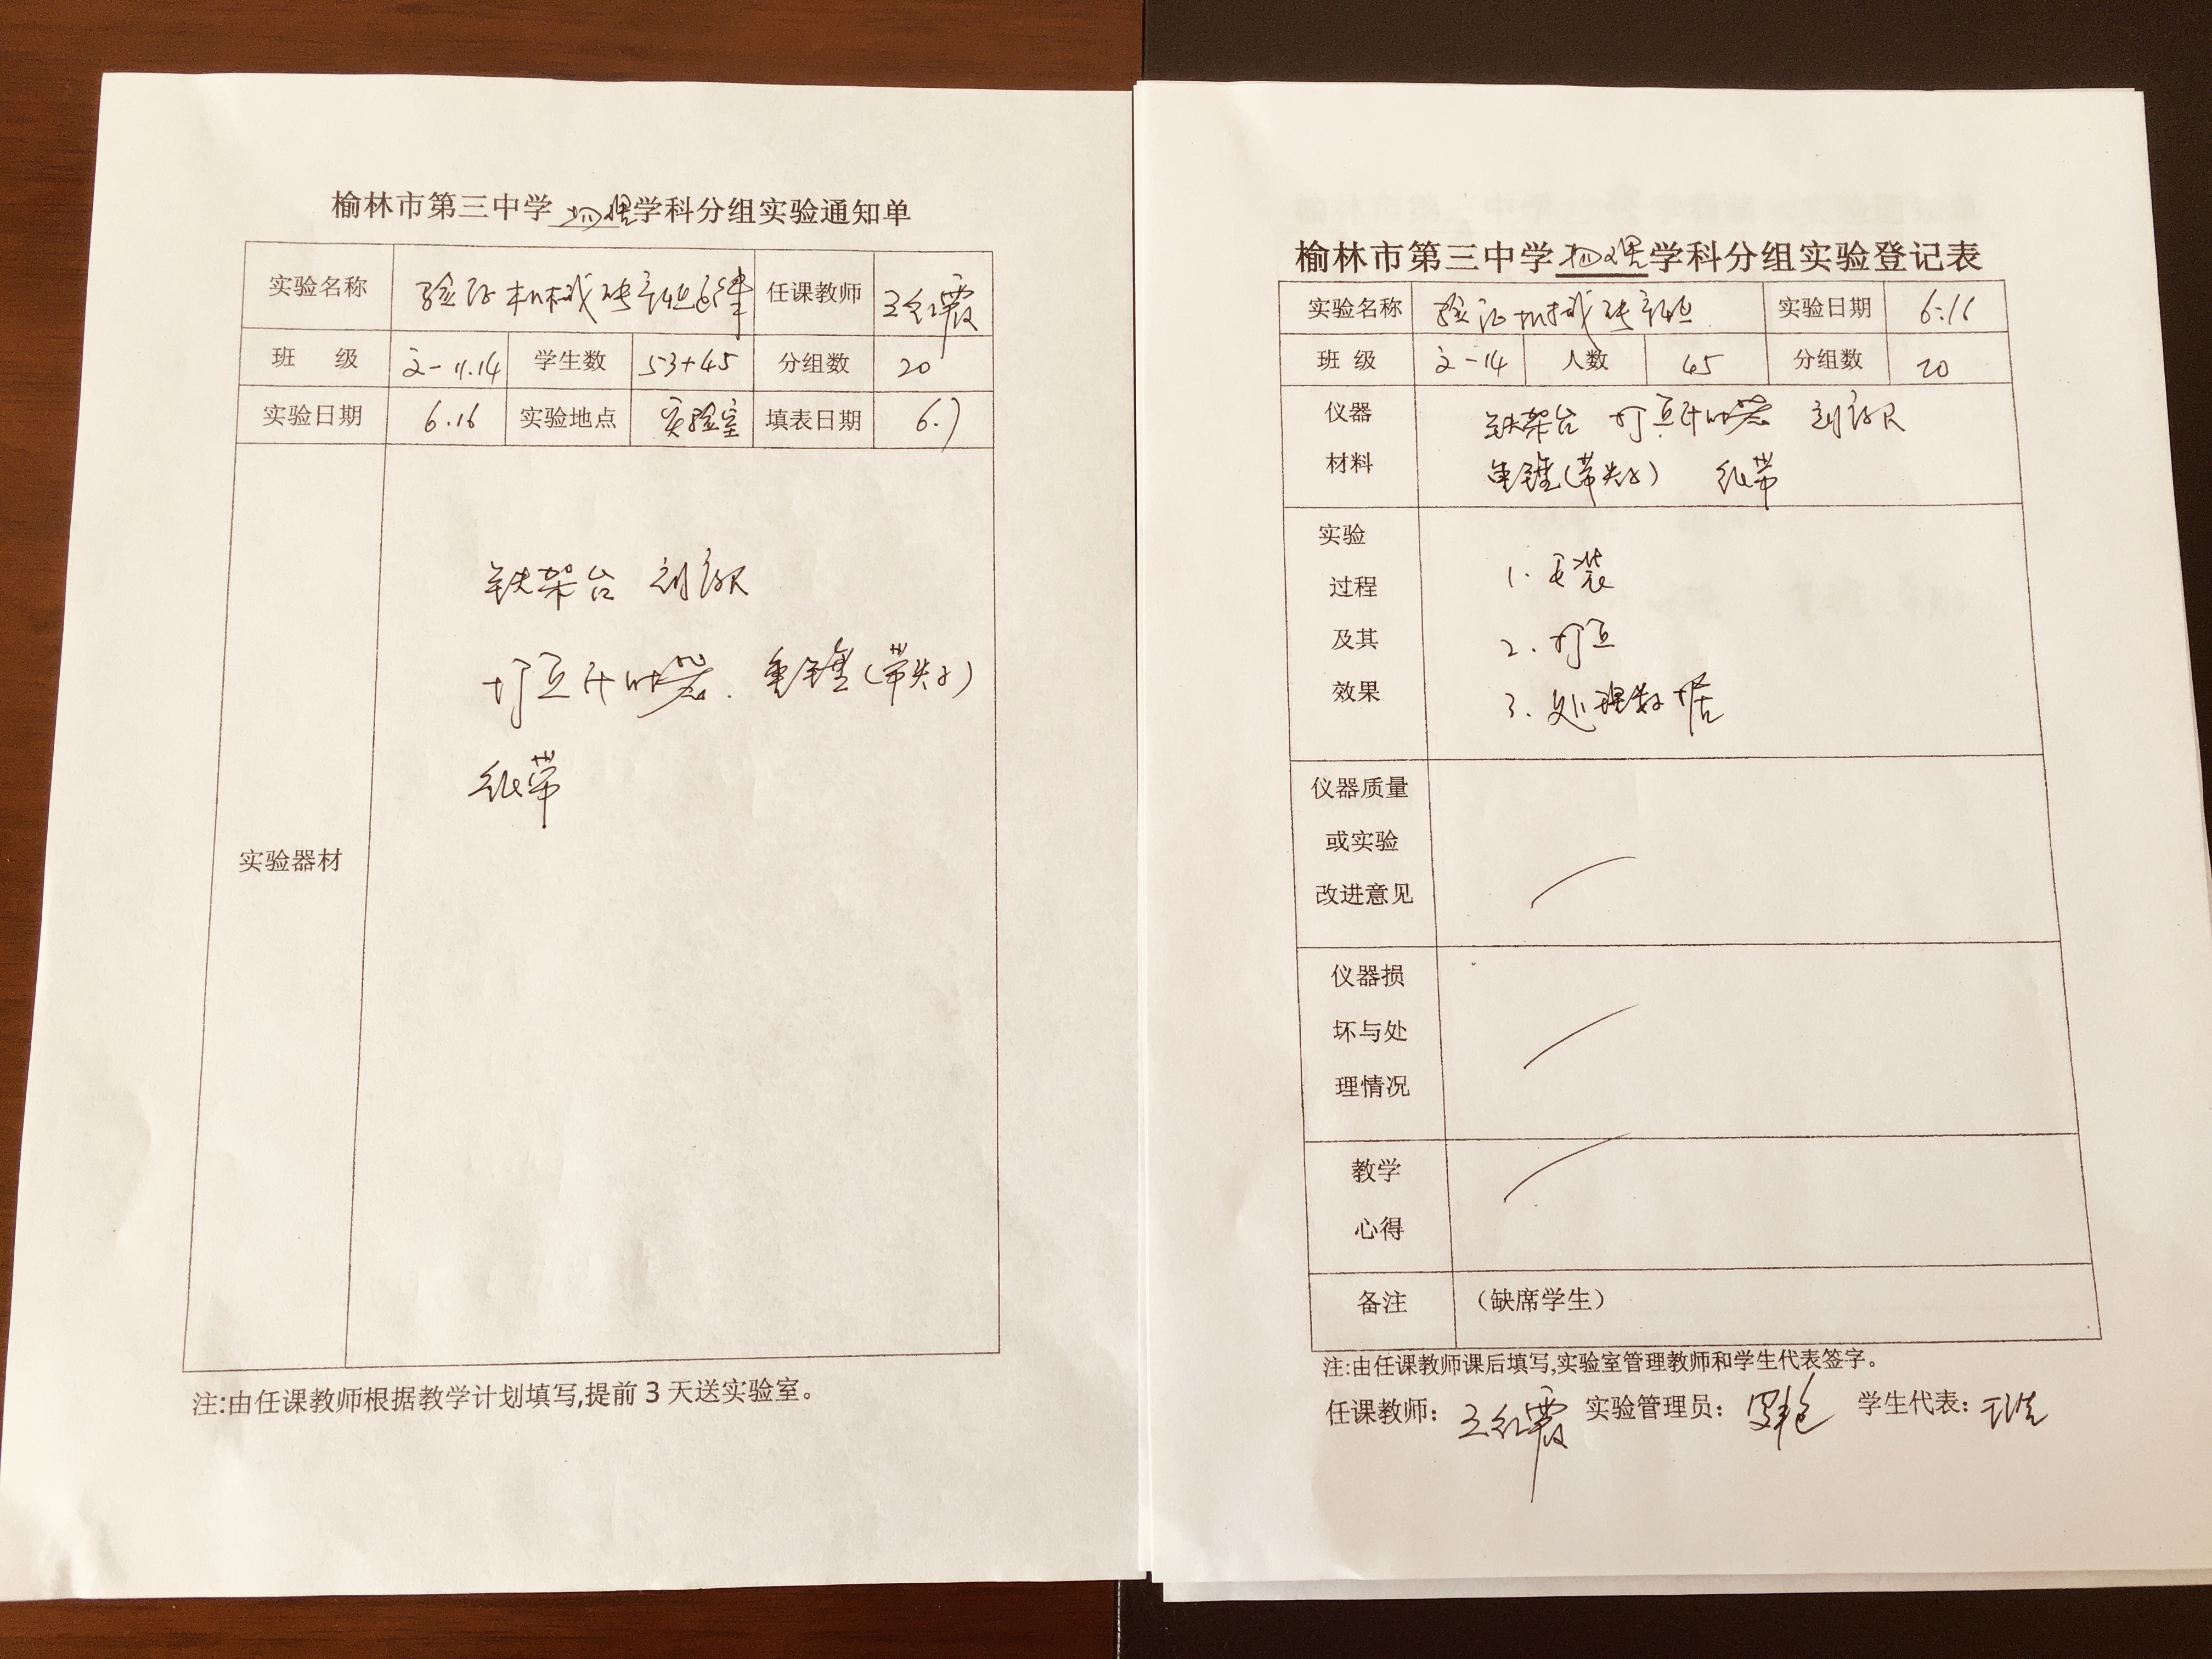 榆林市第三中学 物理 学科分组实验通知单
实验名称 验证机械能守恒定律 任课教师 王红霞
班 级 高一11.14 学生数 53+45 分组数 20
实验日期 6.16 实验地点 实验室 填表日期 6.7
实验器材
铁架台 刻度尺
打点计时器. 重锤(带夹子)
纸带
注:由任课教师根据教学计划填写,提前3天送实验室。
榆林市第三中学 物理 学科分组实验登记表
实验名称 验证机械能守恒 实验日期 6.16
班 级 高一14 人数 45 分组数 20
仪器 铁架台 打点计时器 刻度尺
材料 重锤(带夹子) 纸带
实验
过程 1. 安装
及其 2. 打点
效果 3. 处理数据
仪器质量
或实验
改进意见
仪器损
坏与处
理情况
教学
心得
备注 (缺席学生)
注:由任课教师课后填写,实验室管理教师和学生代表签字。
任课教师: 王红霞 实验管理员: 学生代表: